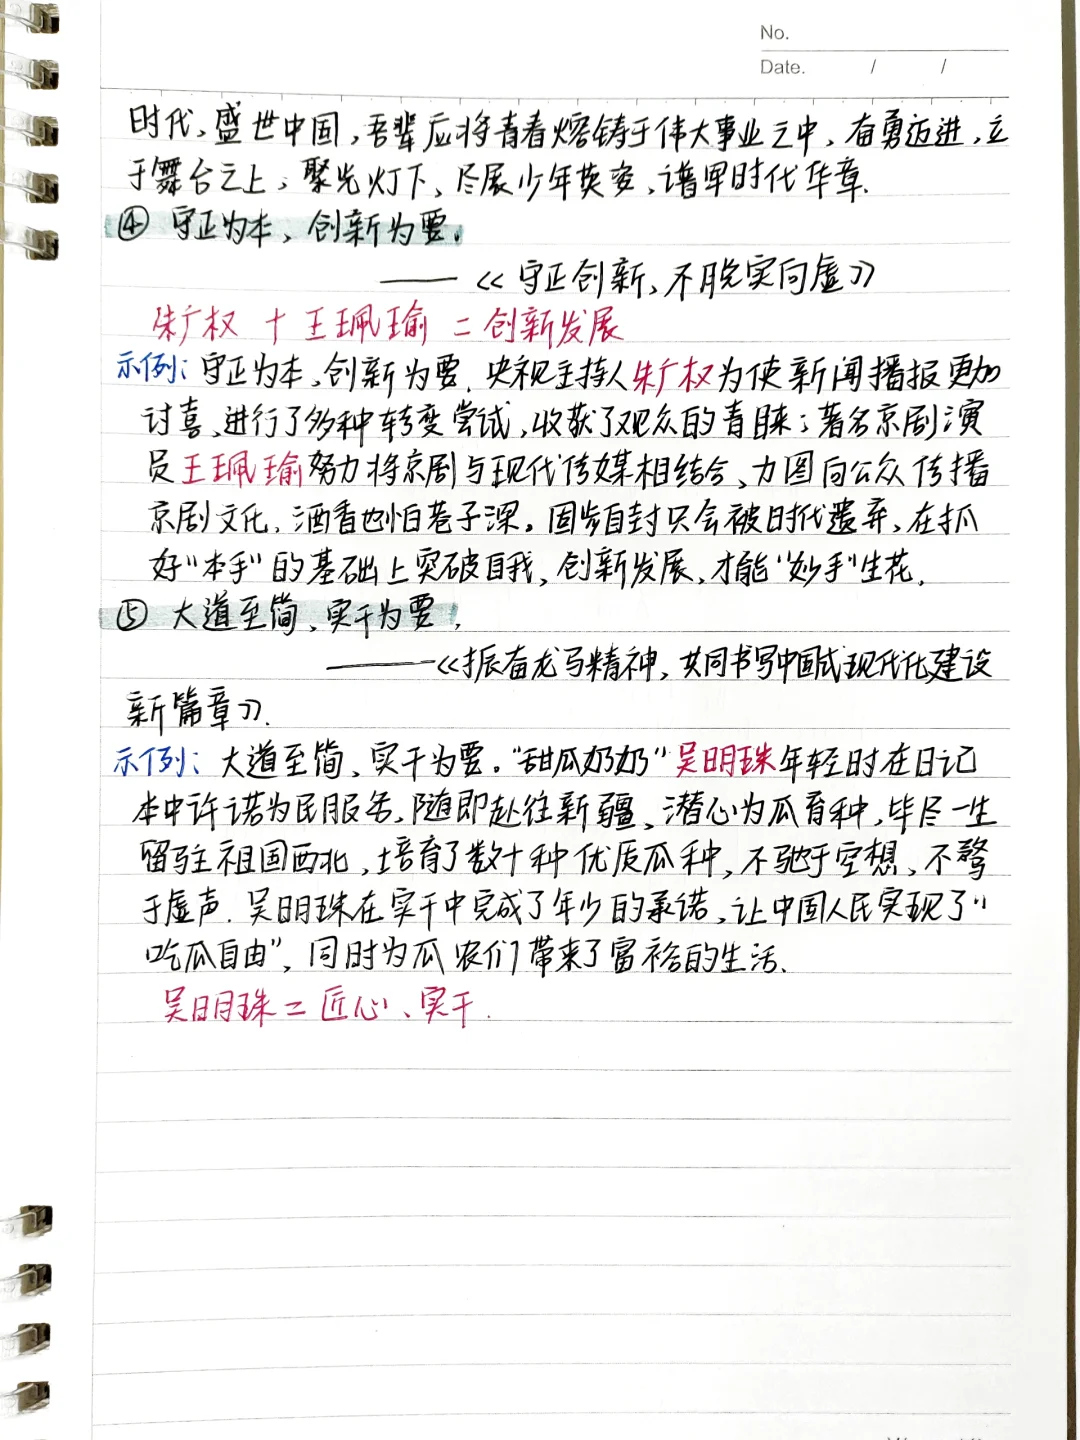 No.
Date. / /
时代,盛世中国,吾辈应将青春熔铸于伟大事业之中,奋勇迈进,立
于舞台之上,聚光灯下,尽展少年英姿,谱写时代华章.
④ 守正为本,创新为要.
——《守正创新,不脱实向虚》
朱广权 + 王珮瑜 = 创新发展
示例: 守正为本,创新为要.央视主持人朱广权为使新闻播报更加
讨喜,进行了多种转变尝试,收获了观众的青睐;著名京剧演
员王珮瑜努力将京剧与现代传媒相结合,力图向公众传播
京剧文化.酒香也怕巷子深,固步自封只会被时代遗弃,在抓
好"本手"的基础上突破自我,创新发展,才能"妙手"生花.
⑤ 大道至简,实干为要.
——《振奋龙马精神,共同书写中国式现代化建设
新篇章》.
示例: 大道至简,实干为要."甜瓜奶奶"吴明珠年轻时在日记
本中许诺为民服务,随即赴往新疆,潜心为瓜育种,毕尽一生
留驻祖国西北,培育了数十种优质瓜种,不驰于空想,不骛
于虚声.吴明珠在实干中完成了年少的承诺,让中国人民实现了"
吃瓜自由",同时为瓜农们带来了富裕的生活.
吴明珠 = 匠心、实干.